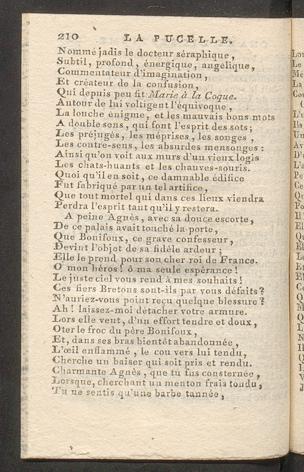 210 LA PUCELLE.
Nommé jadis le docteur séraphique,
Subtil, profond, énergique, angélique,
Commentateur d'imagination,
Et créateur de la confusion,
Qui depuis peu fit Marie à la Coque.
Autour de lui voltigent l'équivoque,
La louche énigme, et les mauvais bons mots
A double sens, qui font l'esprit des sots;
Les préjugés, les méprises, les songes,
Les contre-sens, les absurdes mensonges:
Ainsi qu'on voit aux murs d'un vieux logis
Les chats-huants et les chauves-souris.
Quoi qu'il en soit, ce damnable édifice
Fut fabriqué par un tel artifice,
Que tout mortel qui dans ces lieux viendra
Perdra l'esprit tant qu'il y restera.
A peine Agnès, avec sa douce escorte,
De ce palais avait touché la porte,
Que Bonifoux, ce grave confesseur,
Devint l'objet de sa fidèle ardeur;
Elle le prend pour son cher roi de France.
O mon héros! ô ma seule espérance!
Le juste ciel vous rend à mes souhaits!
Ces fiers Bretons sont-ils par vous défaits?
N'auriez-vous point reçu quelque blessure?
Ah! laissez-moi détacher votre armure.
Lors elle veut, d'un effort tendre et doux,
Oter le froc du père Bonifoux,
Et, dans ses bras bientôt abandonnée,
L'œil enflammé, le cou vers lui tendu,
Cherche un baiser qui soit pris et rendu.
Charmante Agnès, que tu fus consternée,
Lorsque, cherchant un menton frais tondu,
Tu ne sentis qu'une barbe tannée,